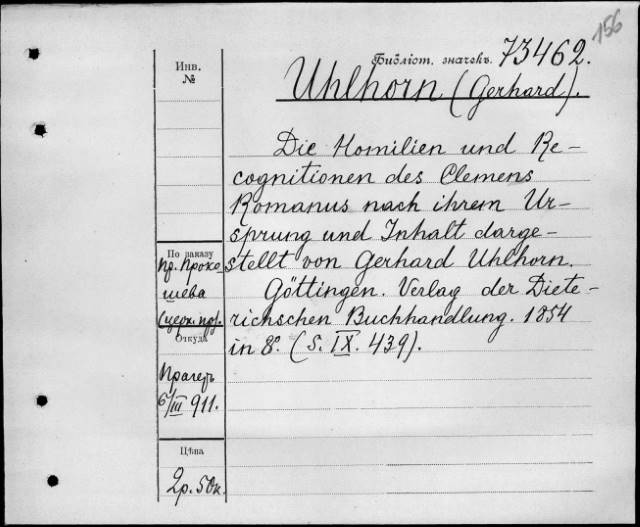 156
Библіот. значекъ. 73462.
Инв.
№
Uhlhorn (Gerhard).
Die Homilien und Re-
cognitionen des Clemens
Romanus nach ihrem Ur-
sprung und Inhalt darge-
stellt von Gerhard Uhlhorn.
Göttingen. Verlag der Diete-
richschen Buchhandlung. 1854
in 8º. (S. IX. 439).
По заказу
пр. Проко-
шева
(церк. пр).
Откуда
Прагеръ
6/III 911.
Цѣна
2р. 50к.